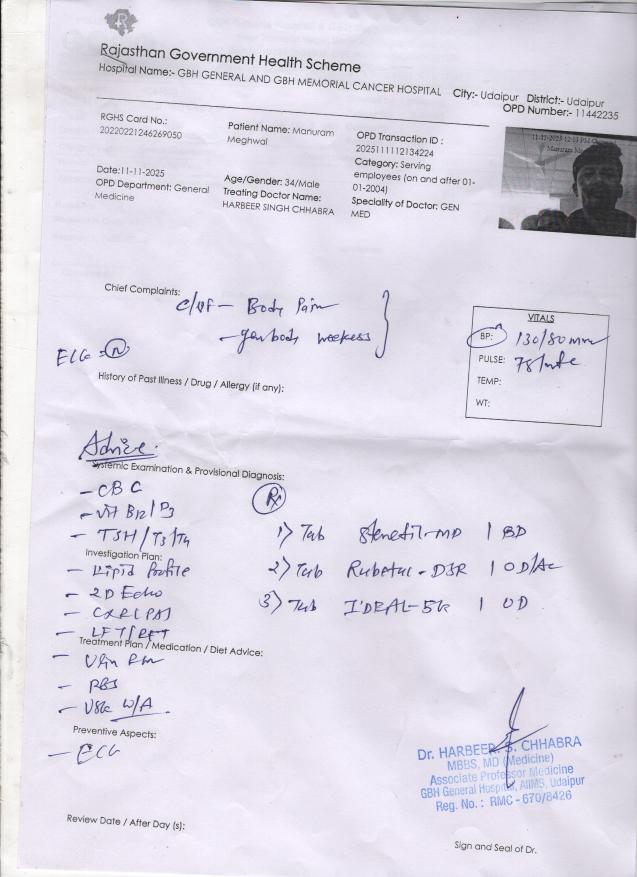 Rajasthan Government Health Scheme
Hospital Name:- GBH GENERAL AND GBH MEMORIAL CANCER HOSPITAL City:- Udaipur District:- Udaipur
OPD Number:- 11442235
RGHS Card No.:
20220221246269050
Patient Name: Manuram
Meghwal
OPD Transaction ID :
2025111112134224
Category: Serving
employees (on and after 01-
01-2004)
Date:11-11-2025
OPD Department: General
Medicine
Age/Gender: 34/Male
Treating Doctor Name:
HARBEER SINGH CHHABRA
Speciality of Doctor: GEN
MED
Chief Complaints:
Body Pain
weekess
ECG - N
VITALS
BP: 130/80 mm
PULSE: 78/
TEMP:
WT:
History of Past Illness / Drug / Allergy (if any):
Advice:
Systemic Examination & Provisional Diagnosis:
- CBC
- Vit B12/D3
- TSH/T3/T4
Investigation Plan:
- Lipid Profile
- 2D Echo
- CXR(PA)
- LFT/RFT
Rx
1) Tab Stenetil-MD 1 BD
2) Tab -DSR 1 OD/AC
3) Tab 1 OD
Treatment Plan / Medication / Diet Advice:
- RBS
- W/A
Preventive Aspects:
- ECG
Dr. HARBEER S. CHHABRA
MBBS, MD (Medicine)
Associate Professor Medicine
GBH General Hospital, AIIMS, Udaipur
Reg. No. : RMC - 670/8426
Review Date / After Day (s):
Sign and Seal of Dr.